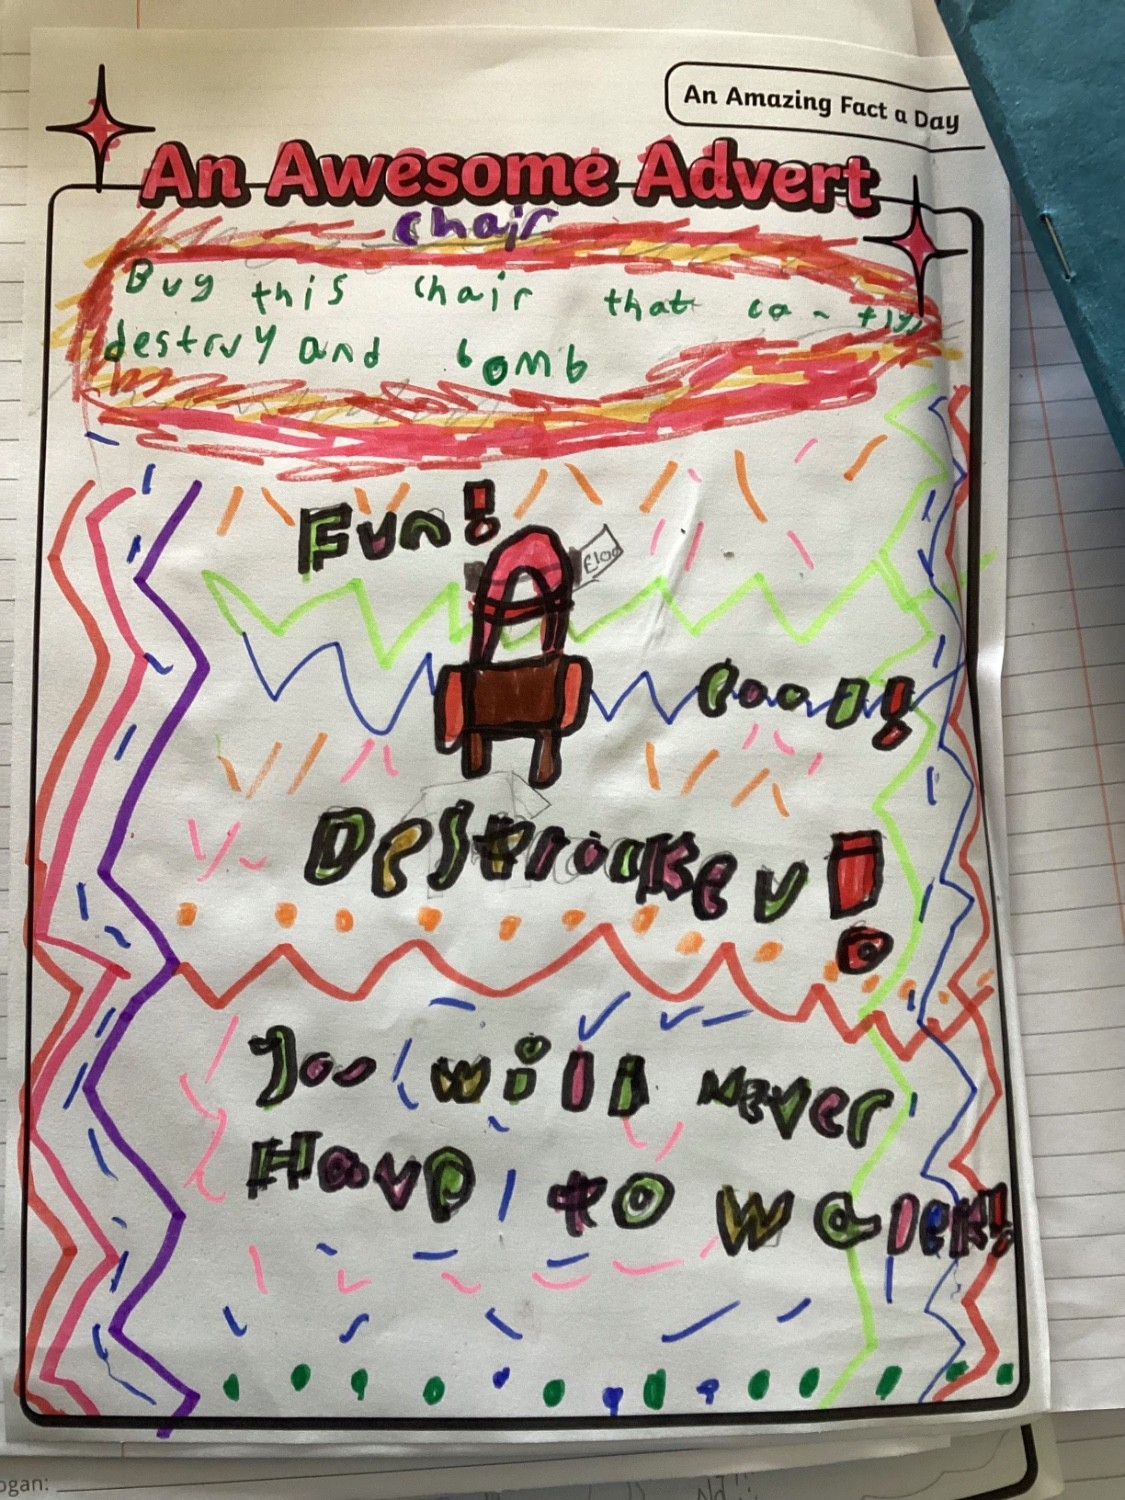 An Amazing Fact a Day
An Awesome Advert
chair
Buy this chair that can fly
destry and bomb
Fun!
£100
Cool!
Destrockev!
Yoo will Never
Have to walek!
ogan: